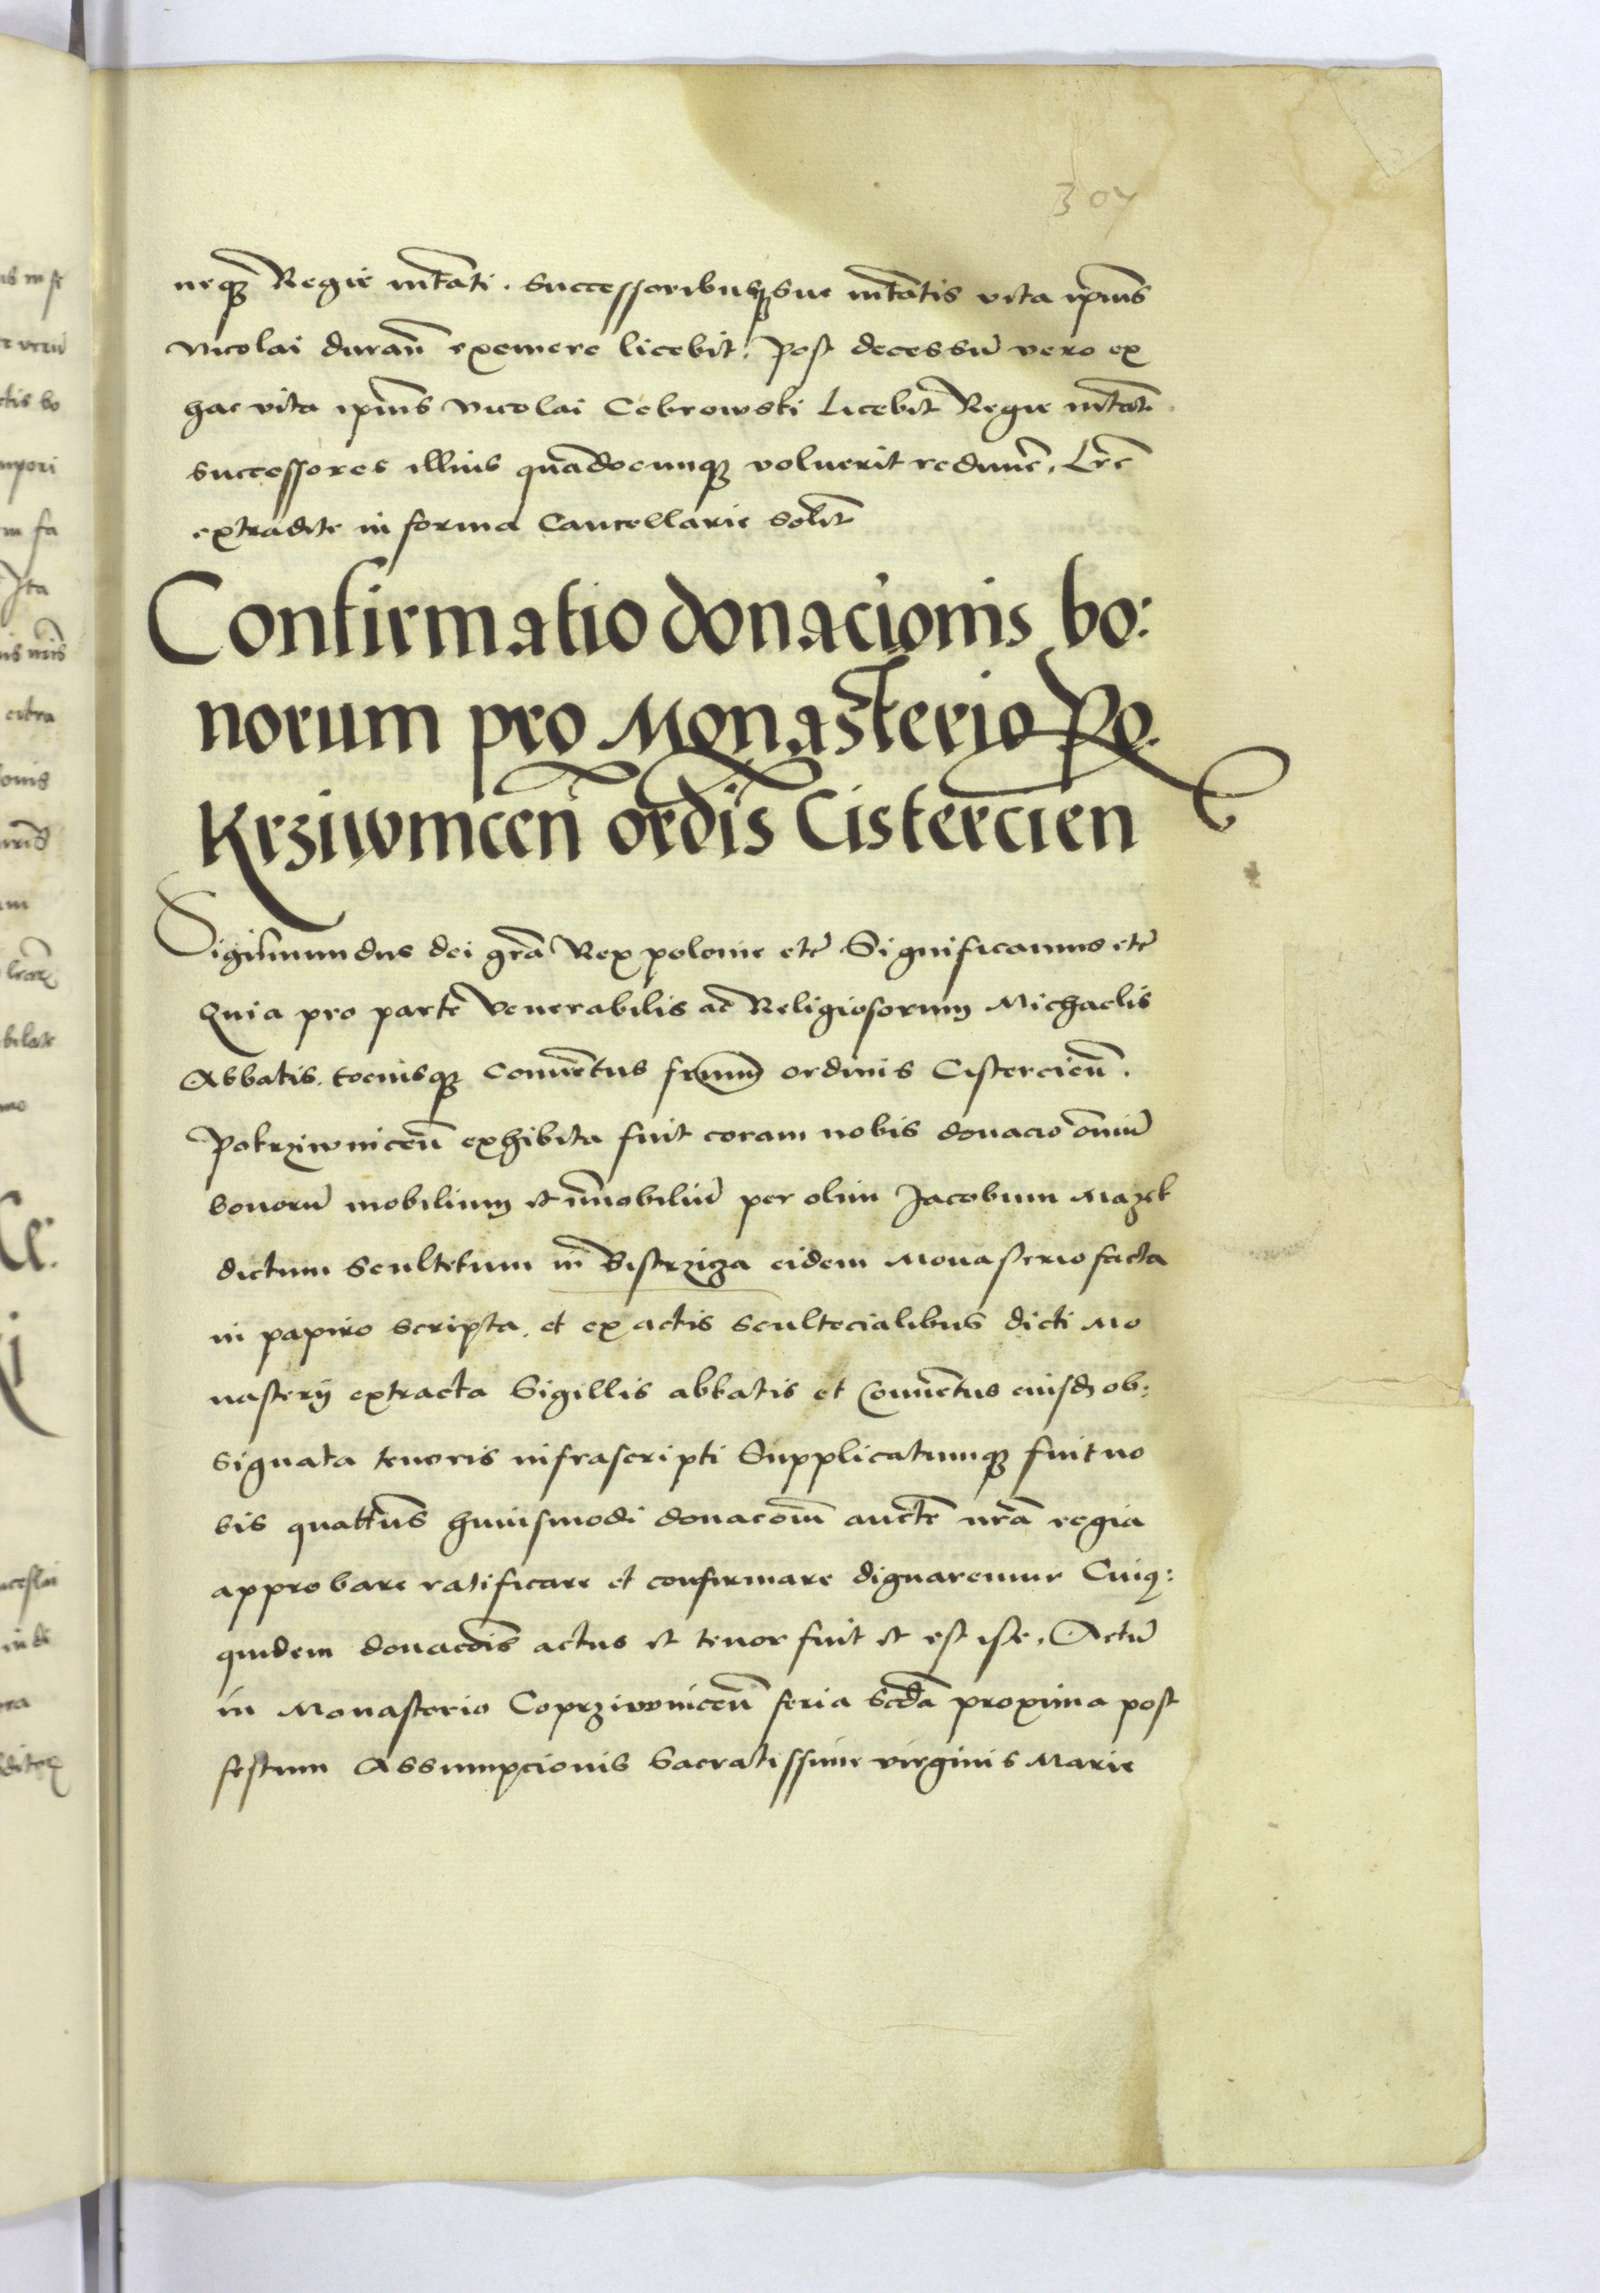 304
neqꝫ Regie mtāti. successoribusqꝫ sue mtātis vita ipiūs
Nicolai durañ exemere licebit. Post decessū vero ex
hac vita ipiūs Nicolai Cebrowski Licebit Regie mtāti
successores illius quādocunqꝫ voluerit redimē. Lrē
extradite in forma Cancellarie solit̄
Confirmatio donacionis bo:
norum pro Monasterio Po
krziwnicen̄ ordīs Cistercien
Sigismundus dei grā Rex polonie etc̄ Significamus etc̄
Quia pro parte Venerabilis ac Religiosorum Michaelis
Abbatis tociusqꝫ conuētus fr̄um ordinis Cistercien̄.
Pokrziwnicen̄ exhibita fuit coram nobis donacio om̄iū
bonorū mobilium et īmobiliū per olim Jacobum Mazek
dictum scultetum in Bistrziza eidem Monasterio facta
in papiro scripta et ex actis scultecialibus dicti Mo
nasterij extracta Sigillis abbatis et Conuētus eiusdꝫ ob:
signata tenoris infrascripti Supplicatumqꝫ fuit no
bis quatēus huiusmodi donacōm auctē nrā regia
approbare ratificare et confirmare dignaremur Cuiꝰ:
quidem donacōis actus et tenor fuit et est iste. Actū
in Monasterio Coprziwnicen̄ feria scdā proxima post
festum Assumpcionis Sacratissime virginis Marie